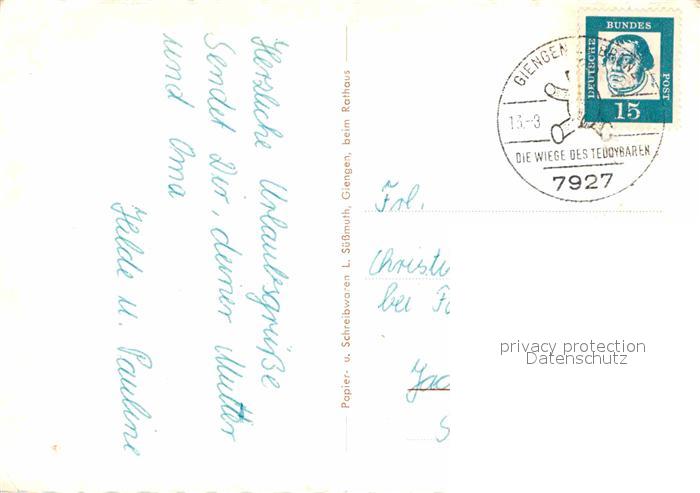 Herzliche Urlaubsgrüße
Sendet Dir, deiner Mutter
und Oma
Hilde u. Pauline
Papier- u. Schreibwaren L. Süßmuth, Giengen, beim Rathaus
GIENGEN
13.-3
DIE WIEGE DES TEDDYBÄREN
7927
DEUTSCHE
BUNDES
POST
15
Frl.
Christi
bei Fa
Jac
S
privacy protection
Datenschutz